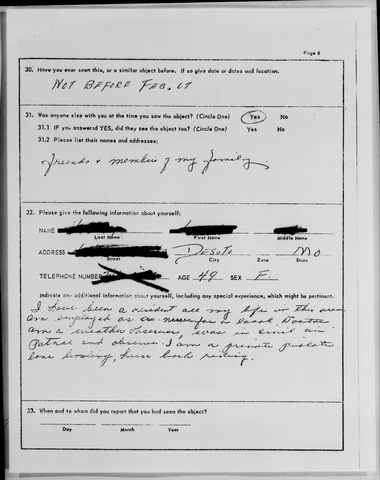 Page 6
30. Have you ever seen this, or a similar object before. If so give date or dates and location.
NOT BEFORE FEB. 67
31. Was anyone else with you at the time you saw the object? (Circle One) Yes No
31.1 IF you answered YES, did they see the object too? (Circle One) Yes No
31.2 Please list their names and addresses:
friends & members of my family.
32. Please give the following information about yourself:
NAME
Last Name First Name Middle Name
ADDRESS DESOTO MO
Street City Zone State
TELEPHONE NUMBER AGE 49 SEX F.
Indicate any additional information about yourself, including any special experience, which might be pertinent.
I have been a resident all my life in this area
am employed as a nurse for a local Doctor
am a weather observer, was in civil air
Patrol and observer. I am a private
love boating, horse back riding.
33. When and to whom did you report that you had seen the object?
Day Month Year